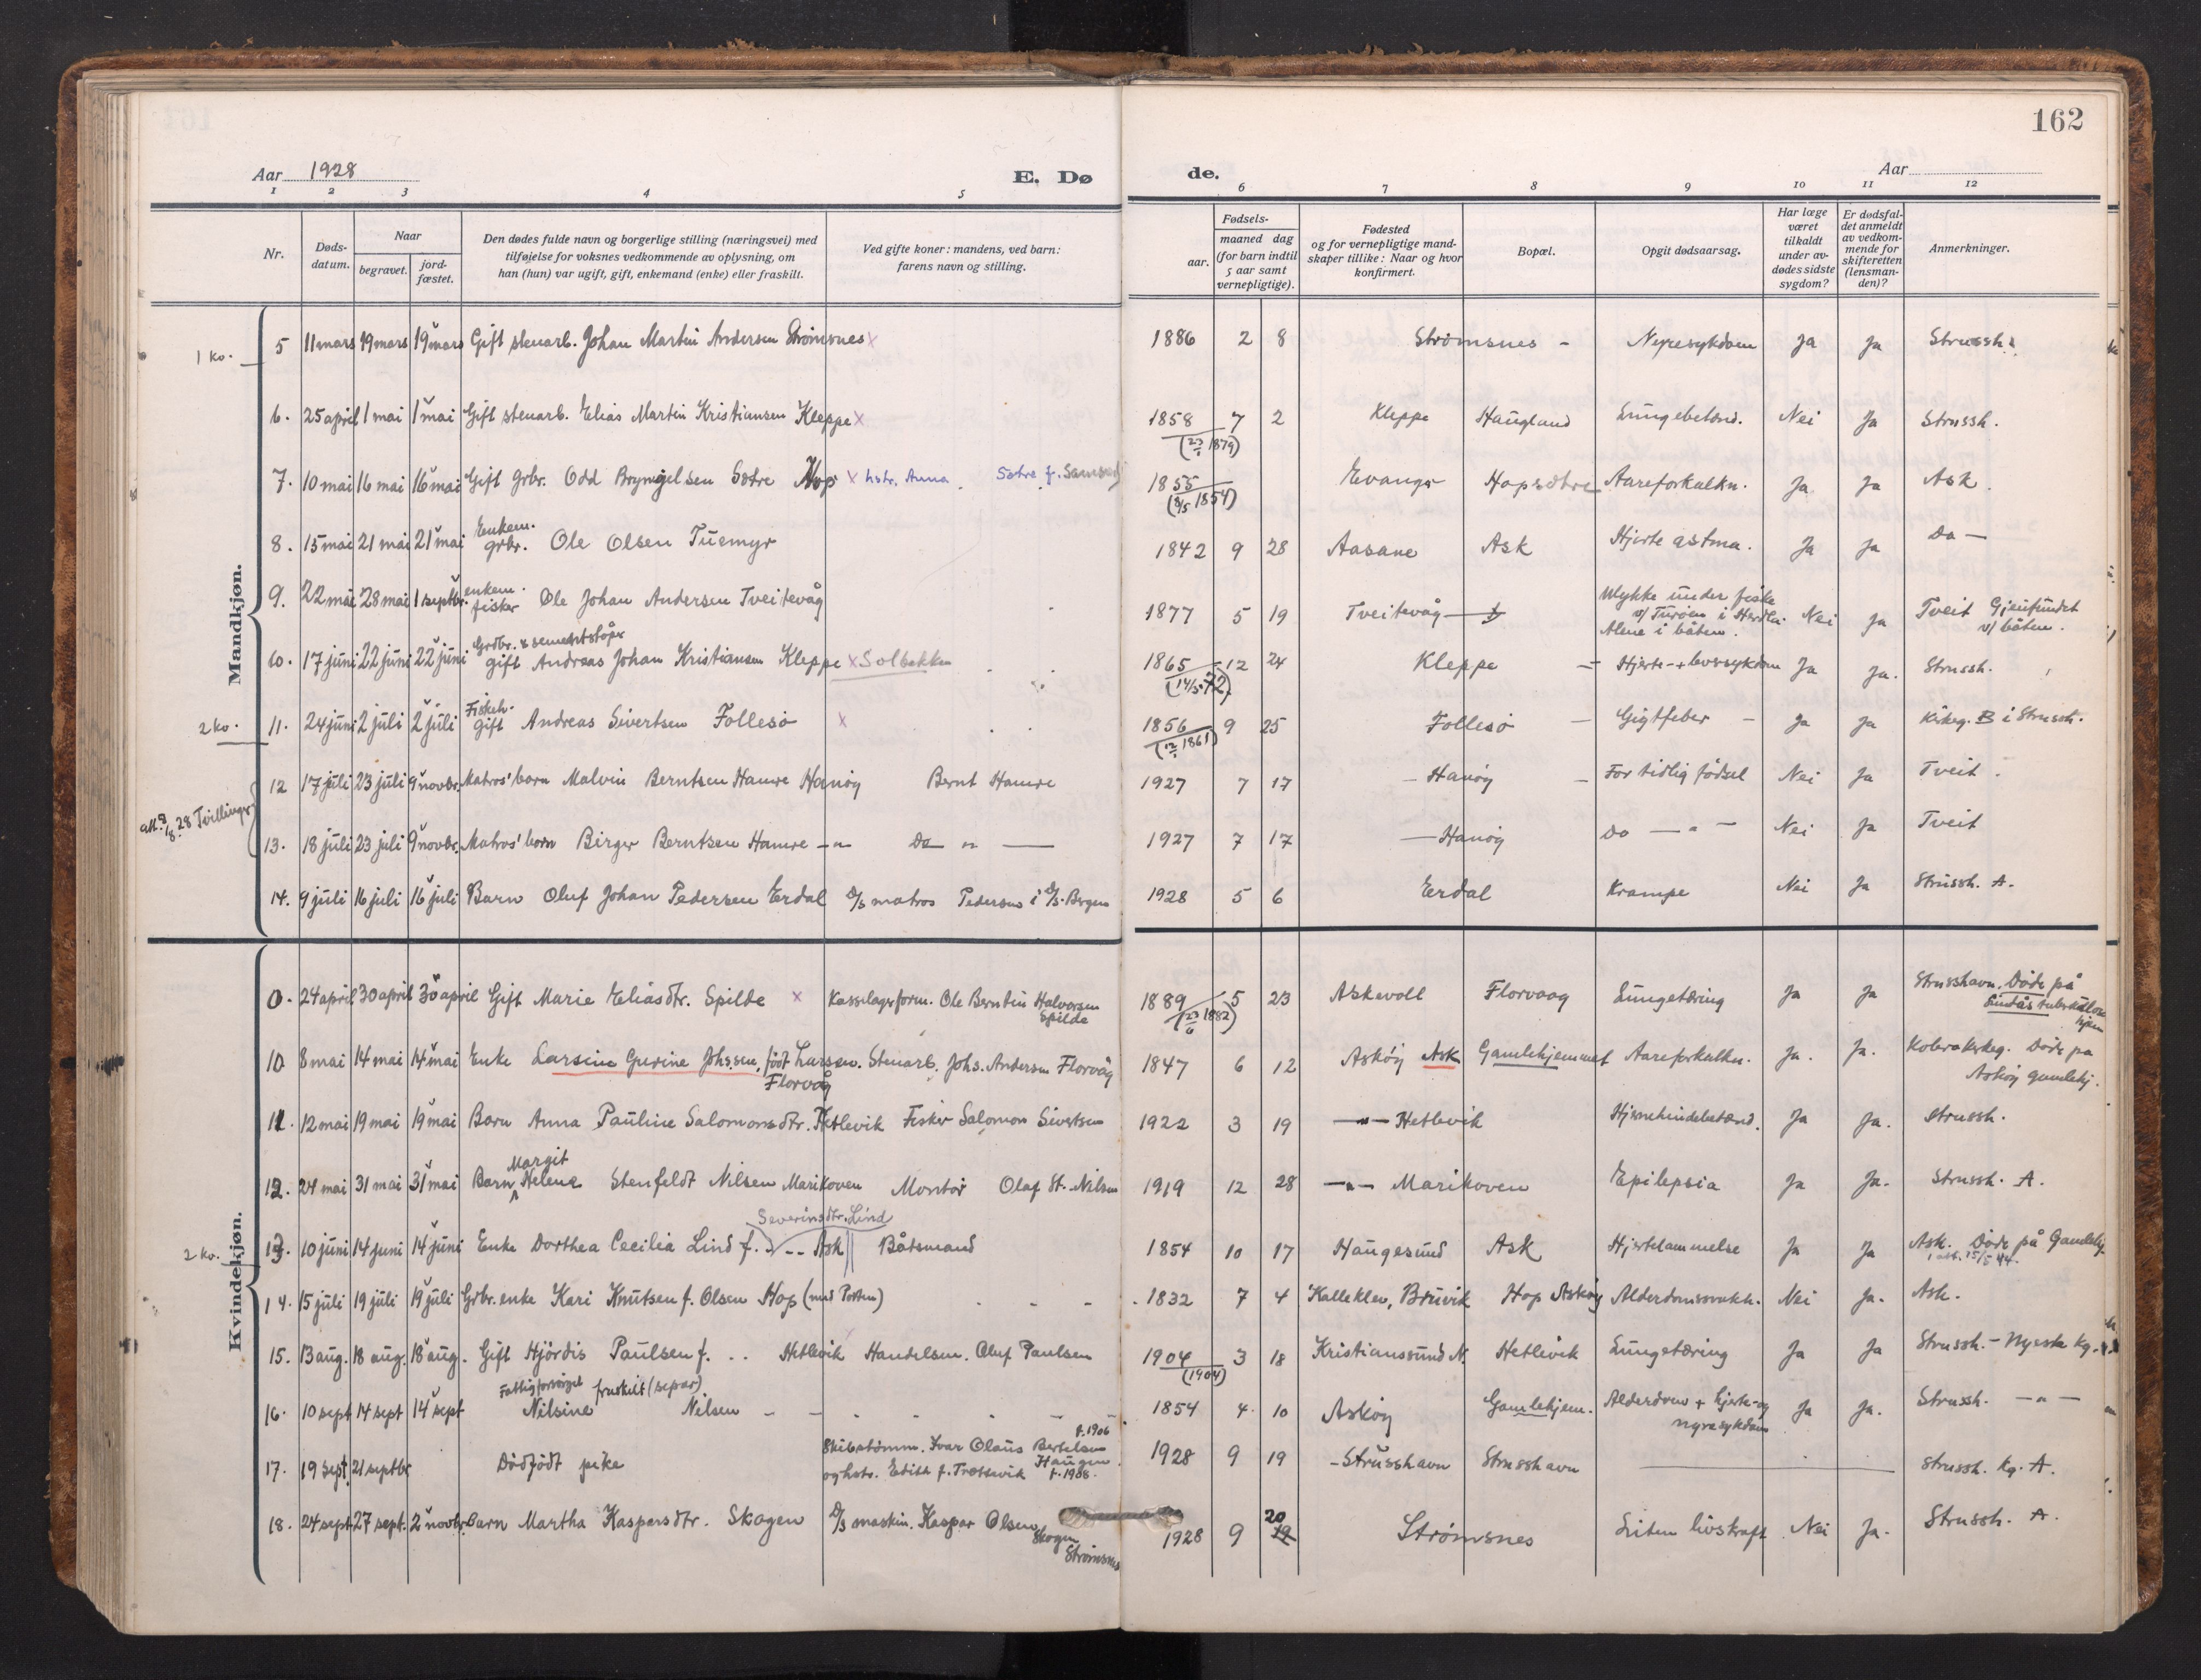 162
Aar 1928
E. Dø de.
Aar
1 2 3 4 5 6 7 8 9 10 11 12
Nr.
Døds-datum.
Naar
begravet.
jord-fæstet.
Den dødes fulde navn og borgerlige stilling (næringsvei) med
tilføielse for voksnes vedkommende av oplysning, om
han (hun) var ugift, gift, enkemand (enke) eller fraskilt.
Ved gifte koner: mandens, ved barn:
farens navn og stilling.
Fødsels-
aar.
maaned dag
(for barn indtil
5 aar samt
vernepligtige).
Fødested
og for vernepligtige mand-
skaper tillike: Naar og hvor
konfirmert.
Bopæl.
Opgit dødsaarsag.
Har læge
været
tilkaldt
under av-
dødes sidste
sygdom?
Er dødsfal-
det anmeldt
av vedkom-
mende for
skifteretten
(lensman-
den)?
Anmerkninger.
Mandkjøn.
1 ko.
5 11 mars 19 mars 19 mars Gift stenarb. Johan Martin Andersen Strømsnes x 1886 2 8 Strømsnes - Nyresykdom Ja Ja Strussh.
6. 25 april 1 mai 1 mai Gift stenarb. Elias Martin Kristiansen Kleppe x 1858 7 2 Kleppe Haugland Lungebetænd. Nei Ja Strussh.
7. 10 mai 16 mai 16 mai Gift grbr. Odd Brynjelsen Sætre Hop x hstr. Anna Sætre f. 1855 Evanger Hopsætre Aareforkalkn. Ja Ja Ask
(8/5 1854)
8. 15 mai 21 mai 21 mai Enkem. grbr. Ole Olsen Tuemyr 1842 9 28 Aasane Ask Hjerte astma. Ja Ja Do —
9. 22 mai 28 mai 1 septbr. enkem. fisker Ole Johan Andersen Tveitevåg 1877 5 19 Tveitevåg Ulykke under fiske v/ Turøen i Herdla. Alene i båten. Nei Ja Tveit Gjenfundet v/ båten.
10. 17 juni 22 juni 22 juni Grdbr. & sementstøper gift Andreas Johan Kristiansen Kleppe x Solbakken 1865 12 24 Kleppe — Hjerte- + leversykdom Ja Ja. Strussh.
(14/5.72)
2 ko.
11. 24 juni 2 juli 2 juli Fiskeh. gift Andreas Sivertsen Follesø x 1856 9 25 Follesø — Gigtfeber — Ja Ja Kirkeg. B i Strussh.
12 17 juli 23 juli 9 novbr. Matros' barn Malvin Berntsen Hamre Hanøy Bernt Hamre 1927 7 17 — Hanøy — For tidlig fødsel Nei Ja Tveit.
28 Tvillinger
13. 18 juli 23 juli 9 novbr. Matros' barn Birger Berntsen Hamre —"— Do " — 1927 7 17 — Hanøy Do — " — Nei Ja Tveit
14. 9 juli 16 juli 16 juli Barn Oluf Johan Pedersen Erdal D/s matros Pedersen i D/s. Bergen 1928 5 6 Erdal Krampe Nei Ja Strussh. A.
Kvindekjøn.
24 april 30 april 30 april Gift Marie Eliasdtr. Spilde x Kasselagerform. Ole Berntin Halvorsen Spilde 1889 5 23 Askevoll Florvaag Lungetæring Ja Ja Strusshavn. Døde på
10 8 mai 14 mai 14 mai Enke Larsine Gurine Johssen, født Larsen. Florvåg Stenarb. Johs. Andersen Florvåg 1847 6 12 Askøy Ask Gamlehjemmet Aareforkalkn. Ja. Ja. Døde på Askøy gamlehj.
11. 12 mai 19 mai 19 mai Barn Anna Pauline Salomonsdtr. Hetlevik Fisker Salomon Sivertsen 1922 3 19 —"— Hetlevik Hjernehindebetænd. Ja Ja. Strussh.
12. 24 mai 31 mai 31 mai Barn Margit Helene Stenfeldt Nilsen Marikoven Montør Olaf St. Nilsen 1919 12 28 —"— Marikoven Epilepsia Ja Ja. Strussh. A.
2 ko.
13. 10 juni 14 juni 14 juni Enke Dorthea Cecilia Lind f. Severinsdtr. Lind Ask Båtsmand 1854 10 17 Haugesund Ask Hjertelammelse Ja Ja Ask. Døde på Gamlehj.
14. 15 juli 19 juli 19 juli Grbr. enke Kari Knutsen f. Olsen Hop (med Porten) 1832 7 4 Kalleklev, Bruvik Hop Askøy Alderdomssvakh. Nei Ja. Ask.
15. 13 aug. 18 aug. 18 aug. Gift Hjördis Paulsen f. .. Hetlevik Handelsm. Oluf Paulsen 1904 3 18 Kristianssund N. Hetlevik Lungetæring Ja Ja Strussh. — Nyeste kg.
(1904)
16. 10 sept 14 sept 14 sept Fattigforsørget fraskilt (separ) Nilsine Nilsen 1854 4 10 Askøy Gamlehjem. Alderdom + hjerte- og nyresykdom Ja Ja. Strussh. —"—
17. 19 sept 21 septbr Dödfödt pike Skibstømm. Ivar Olaus Bertelsen f. 1906 Haugen og hstr. Edith f. Trettevik f. 1908. 1928 9 19 - Strusshavn Strusshavn Strussh. kg. A.
18. 24 sept 27 sept. 2 novbr. Barn Martha Kaspersdtr. Skogen D/s maskin. Kaspar Olsen Skogen Strømsnes 1928 9 20 19 Strømsnes Liten livskraft Nei Ja. Strussh. A.